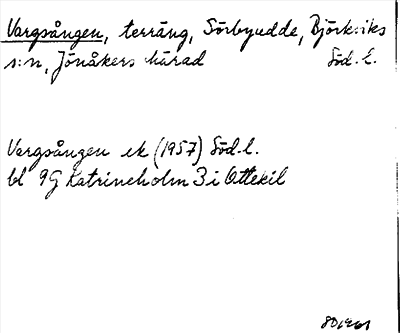 Vargsången, terräng, Sörbyudde, Björkviks
s:n, Jönåkers härad Söd. l.
Vargsången ek (1957) Söd. l.
bl 9G Katrineholm 3 i Ottekil